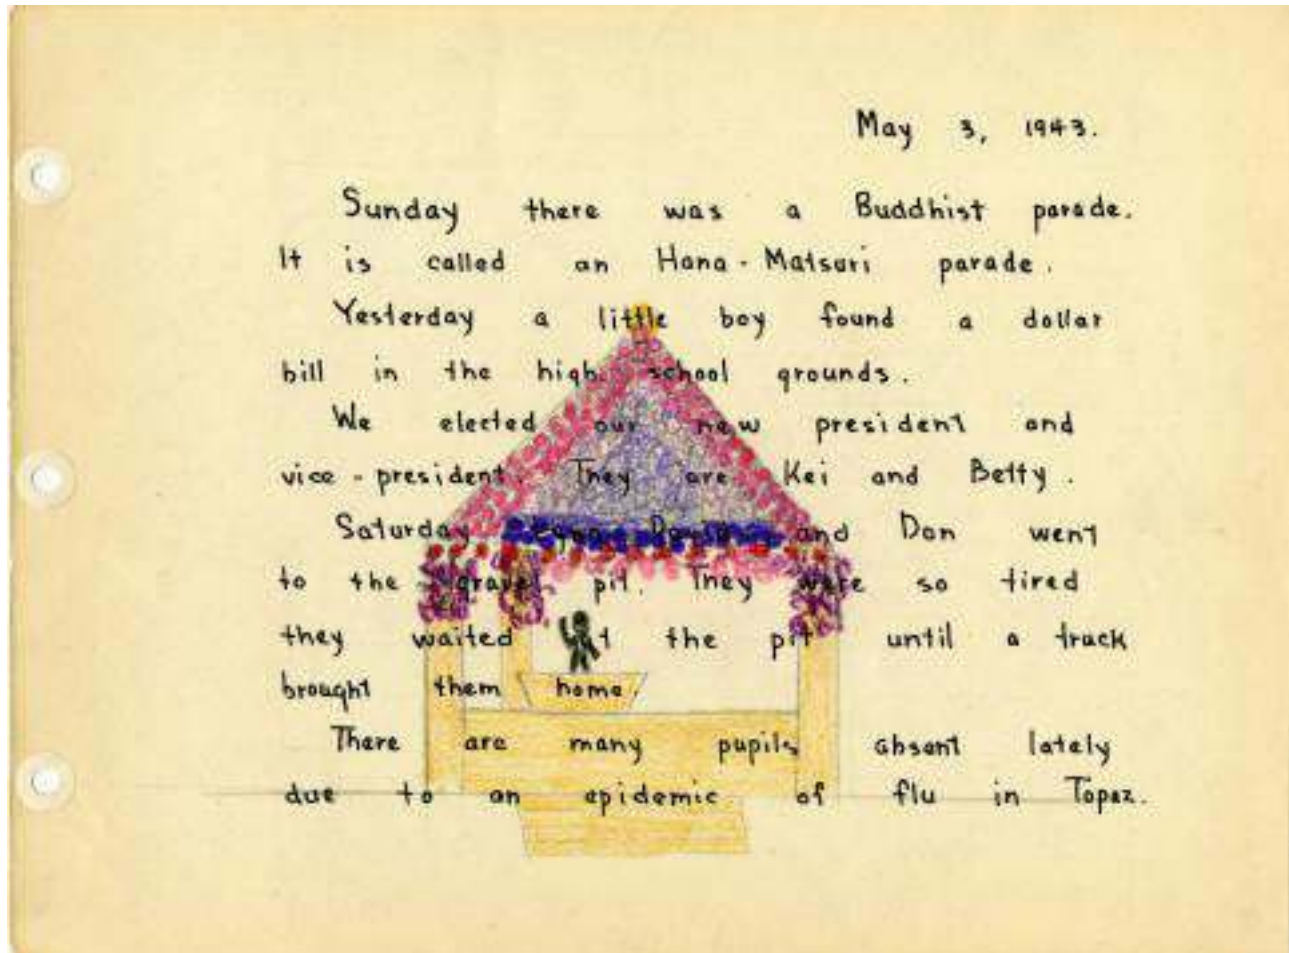 May 3, 1943.
Sunday there was a Buddhist parade.
It is called an Hana-Matsuri parade.
Yesterday a little boy found a dollar
bill in the high school grounds.
We elected our new president and
vice-president. They are Kei and Betty.
Saturday and Don went
to the gravel pit. They were so tired
they waited at the pit until a truck
brought them home.
There are many pupils absent lately
due to an epidemic of flu in Topaz.